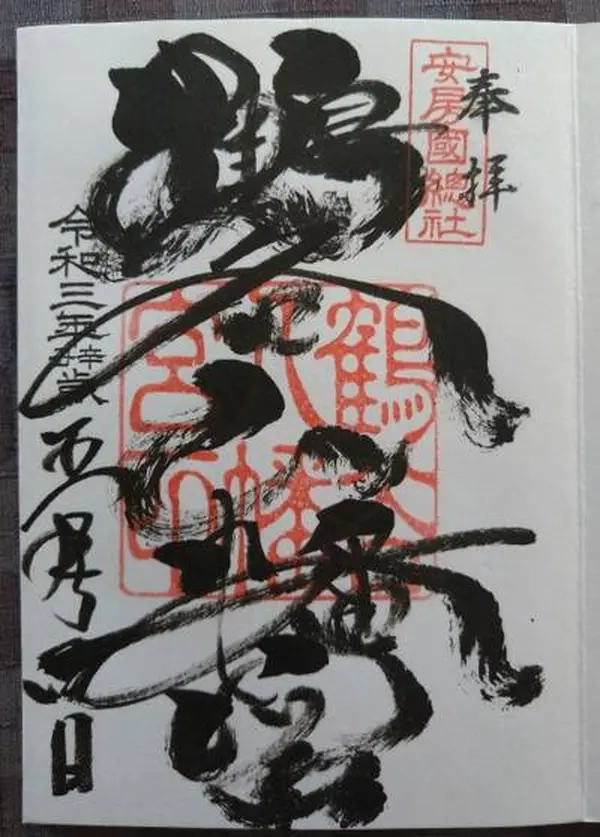 奉拝
安房國總社
鶴谷八幡宮
鶴谷
八幡
宮印
令和三年 歳五月 日